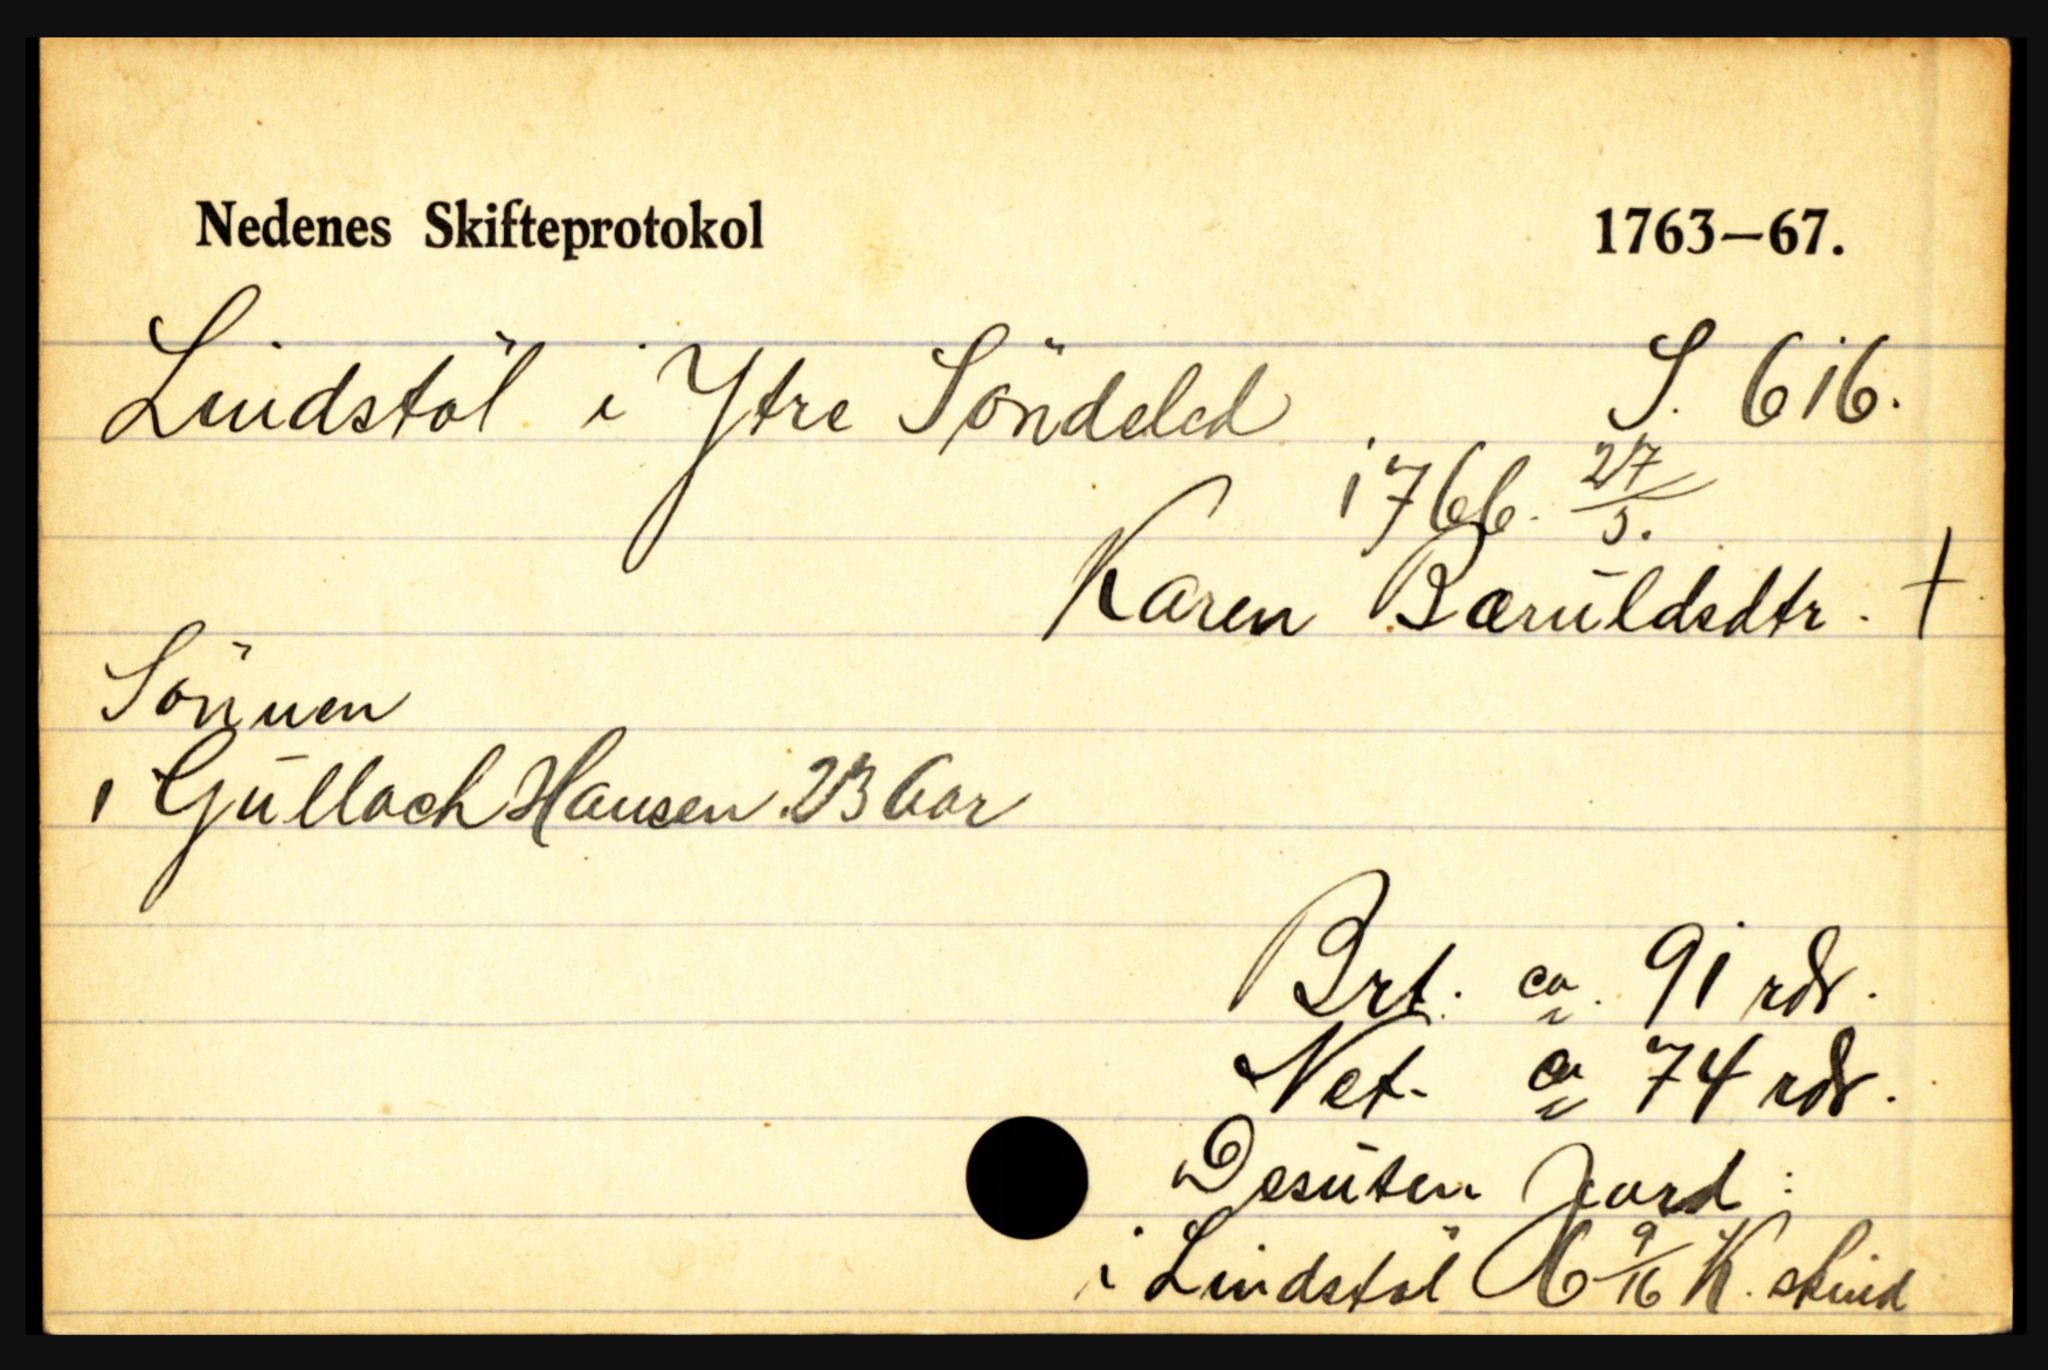 Nedenes Skifteprotokol 1763—67.
Lindstöl i Ytre Söndeled S. 616.
1766. 27/5.
Karen Bæruldsdtr. †
Sönnen
1 Gullach Hansen 23 Aar
Brt. ca. 91 rdr.
Net. ca 74 rdr.
Desuten Jord:
i Lindstöl 6 9/16 K. skind